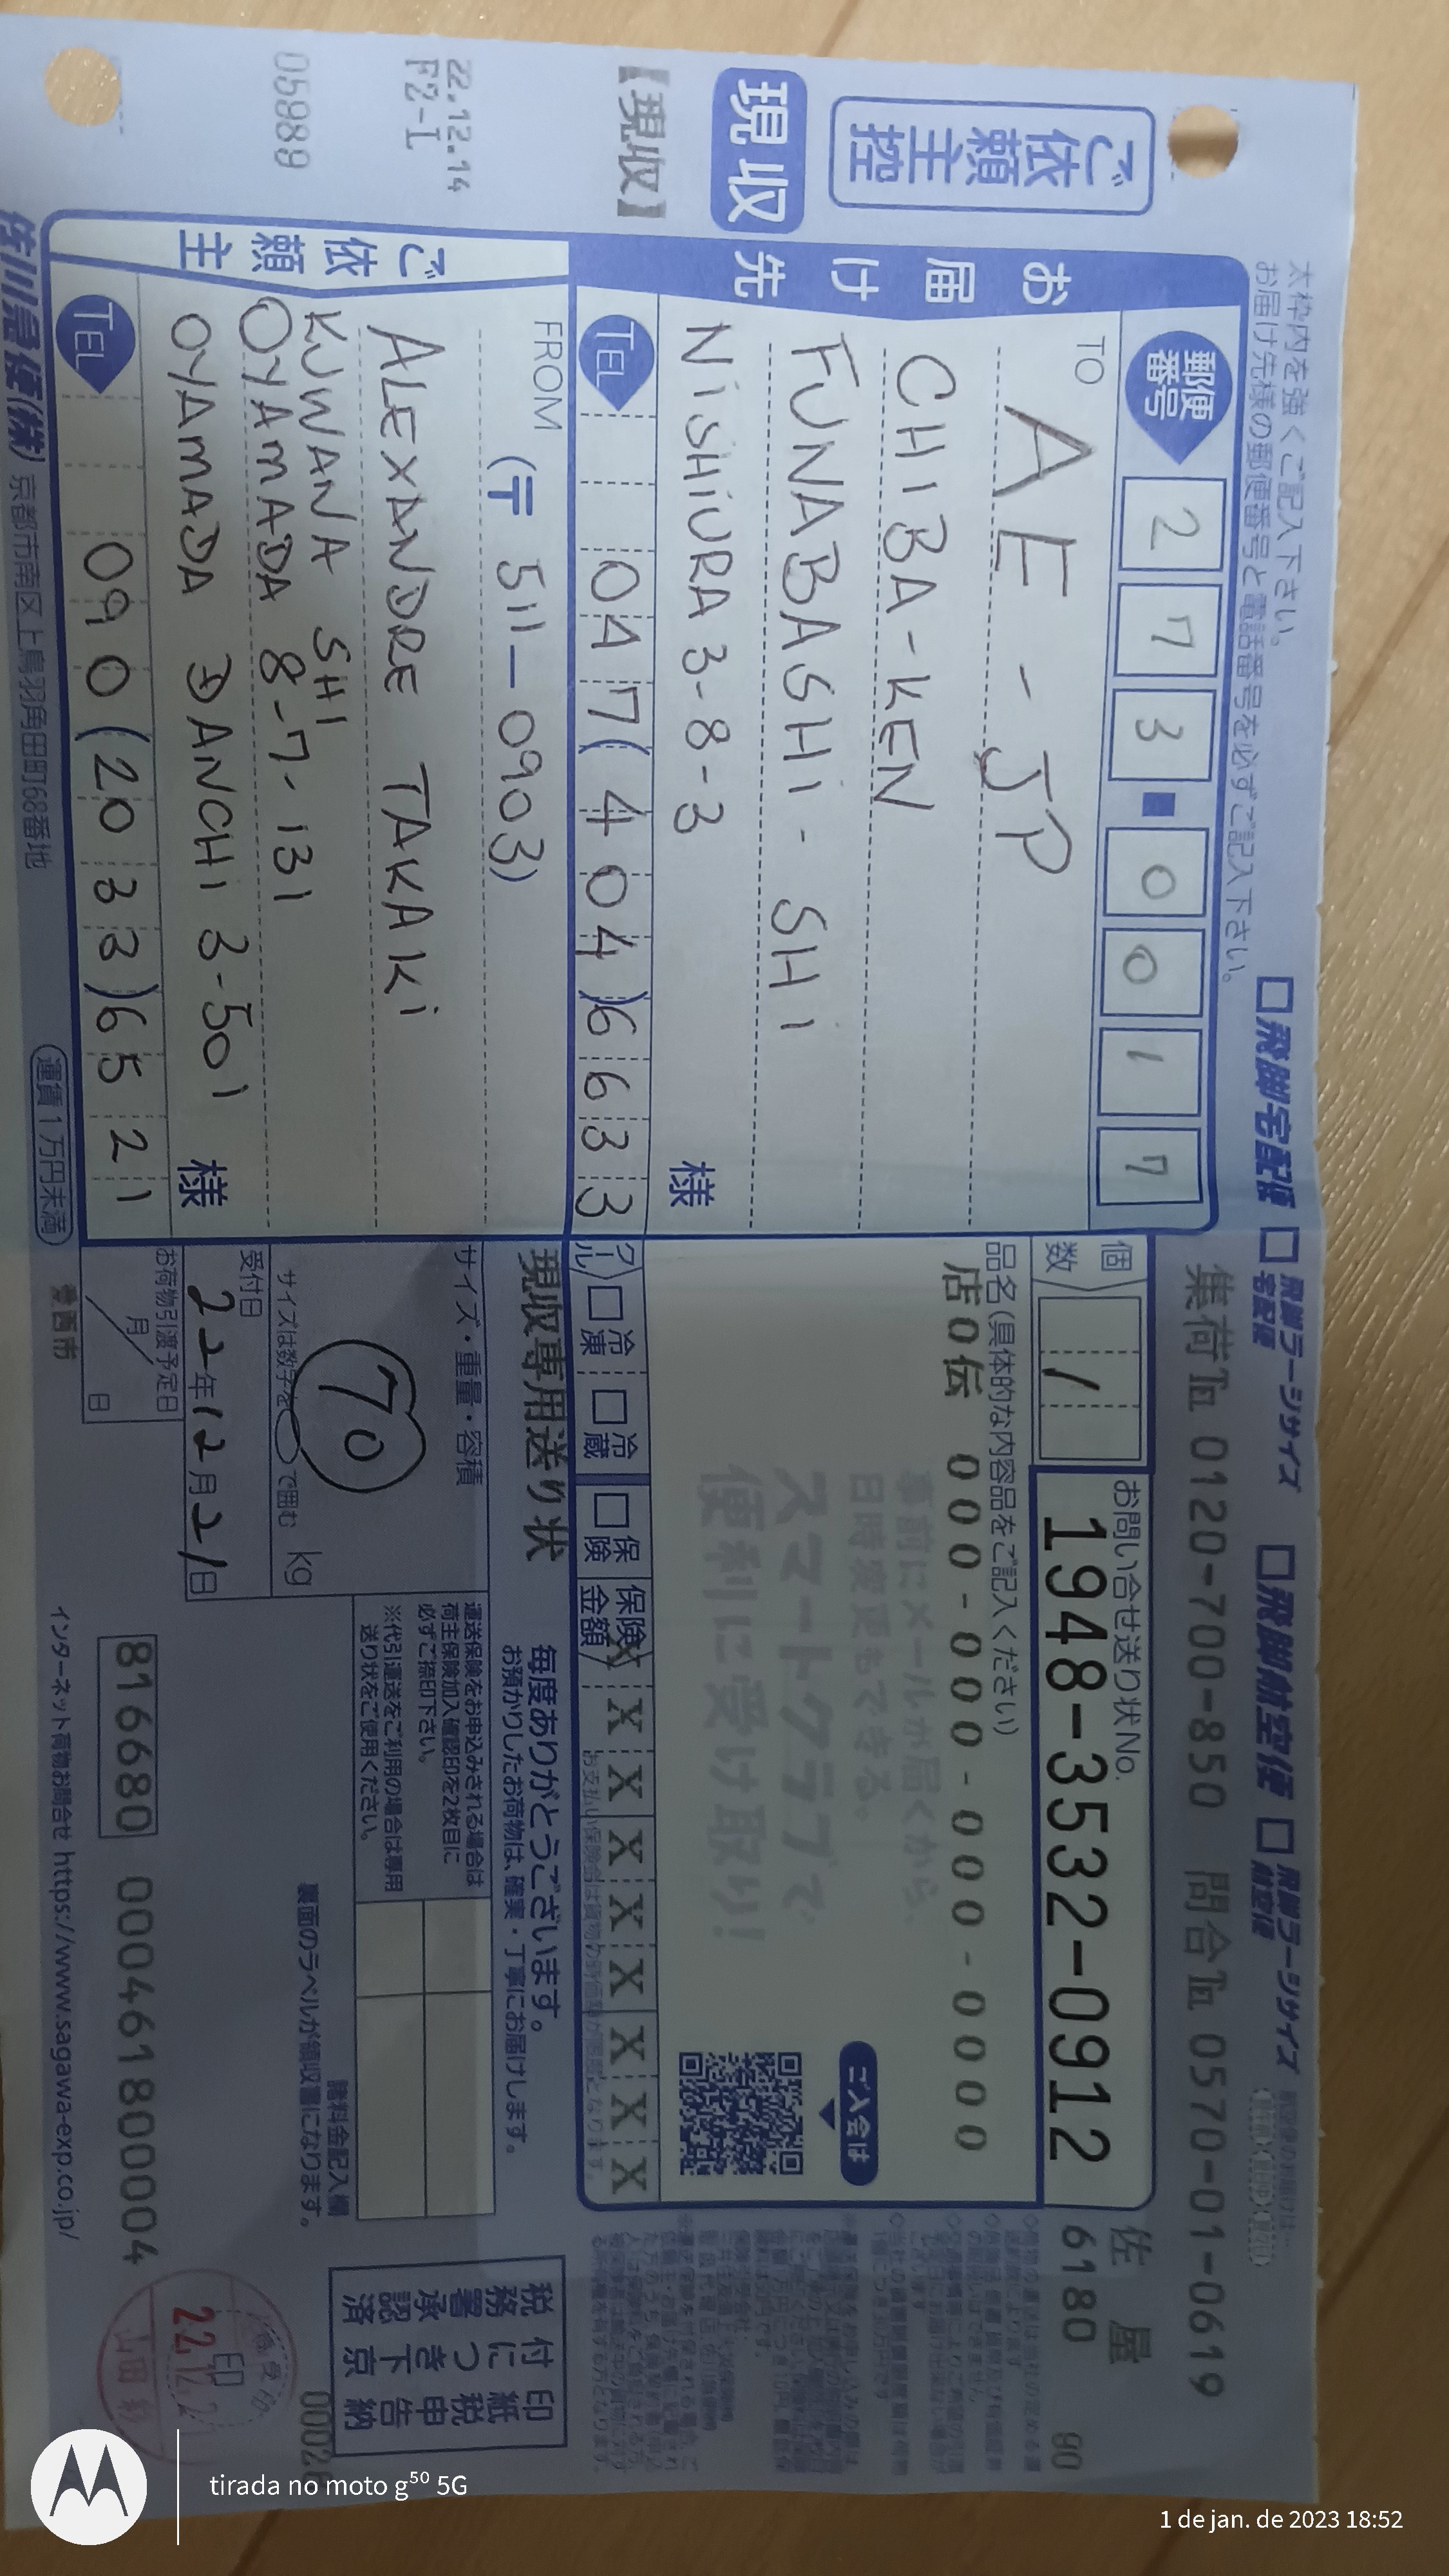 ご依頼主控
現収
【現収】
22.12.14
F2-I
05989
太枠内を強くご記入下さい。
お届け先様の郵便番号と電話番号を必ずご記入下さい。
□飛脚宅配便 □飛脚ラージサイズ宅配便 □飛脚航空便 □飛脚ラージサイズ航空便
集荷℡ 0120-700-850 問合℡ 0570-01-0619
お届け先
郵便番号 273-0017
TO
AE-JP
CHIBA-KEN
FUNABASHI-SHI
NISHIURA 3-8-3
様
TEL 047(404)6633
ご依頼主
FROM (〒511-0903)
ALEXANDRE TAKAKI
KUWANA SHI
OYAMADA 8-7-131
OYAMADA DANCHI 3-501
様
TEL 090(2033)6521
佐川急便(株) 京都市南区上鳥羽角田町68番地
運賃1万円未満
個数 1
お問い合せ送り状No.
1948-3532-0912
佐屋
6180
80
品名(具体的な内容品をご記入ください)
店0伝 000-000-000-0000
事前にメールが届くから、
日時変更もできる。
スマートクラブで
便利に受け取り!
ご入会は
クール □冷凍 □冷蔵 □保険 保険金額 X X X X X X X X
現収専用送り状
毎度ありがとうございます。
お預かりしたお荷物は、確実・丁寧にお届けします。
サイズ・重量・容積
70
サイズは数字を○で囲む kg
受付日
22年12月21日
お荷物引渡予定日
月 日
愛西市
運送保険をお申込みされる場合は
荷主保険加入確認印を2枚目に
必ずご捺印下さい。
※代引運送をご利用の場合は専用
送り状をご使用ください。
諸料金記入欄
裏面のラベルが領収書になります。
816680 0004618000004
インターネット荷物お問合せ https://www.sagawa-exp.co.jp/
印紙税申告納
付につき下京
税務署承認済
22.12.21
tirada no moto g50 5G
1 de jan. de 2023 18:52